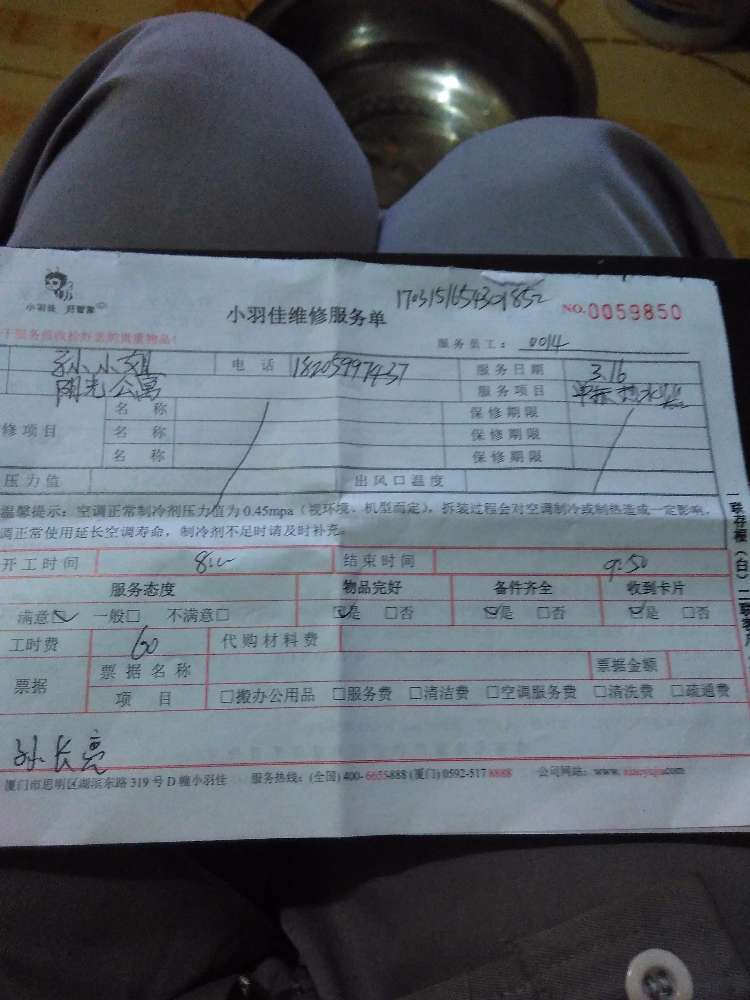 小羽佳 归智家
小羽佳维修服务单
1703151654301852
NO.0059850
服务员工: 0014
孙小姐 电话 18205997437 服务日期 3.16
阳光公寓 服务项目
修项目 名称 保修期限
名称 保修期限
名称 保修期限
压力值 出风口温度
温馨提示:空调正常制冷剂压力值为 0.45mpa(视环境、机型而定),拆装过程会对空调制冷或制热造成一定影响,
调正常使用延长空调寿命,制冷剂不足时请及时补充。
开工时间 结束时间 9:50
服务态度 物品完好 备件齐全 收到卡片
满意☑ 一般□ 不满意□ ☑是 □否 ☑是 □否 ☑是 □否
工时费 60 代购材料费
票据 票据名称 票据金额
项目 □搬办公用品 □服务费 □清洁费 □空调服务费 □清洗费 □疏通费
孙长亮
厦门市思明区湖滨东路 319 号 D 幢小羽佳 服务热线:(全国) 400-6655-888 (厦门) 0592-517 8888 公司网站: www. xiaoyujia.com
一联存根(白)二联客户